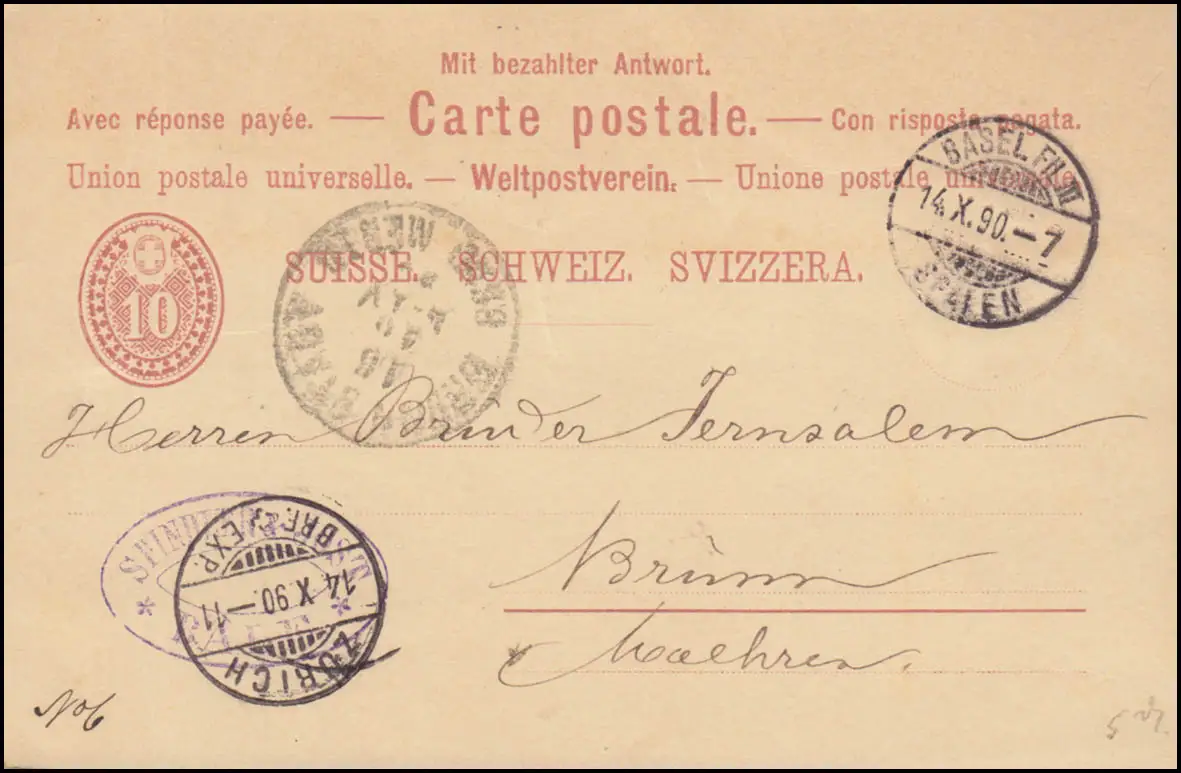 Mit bezahlter Antwort.
Avec réponse payée. — Carte postale. — Con risposta pagata.
Union postale universelle. — Weltpostverein. — Unione postale universale.
BASEL. FIL. III
14. X. 90. – 7
SPALEN
SUISSE. SCHWEIZ. SVIZZERA.
10
Herren Brüder Jerusalem
Brünn
Maehren.
BRF. EXP.
14 X 90. – 11
ZÜRICH
No 6
5